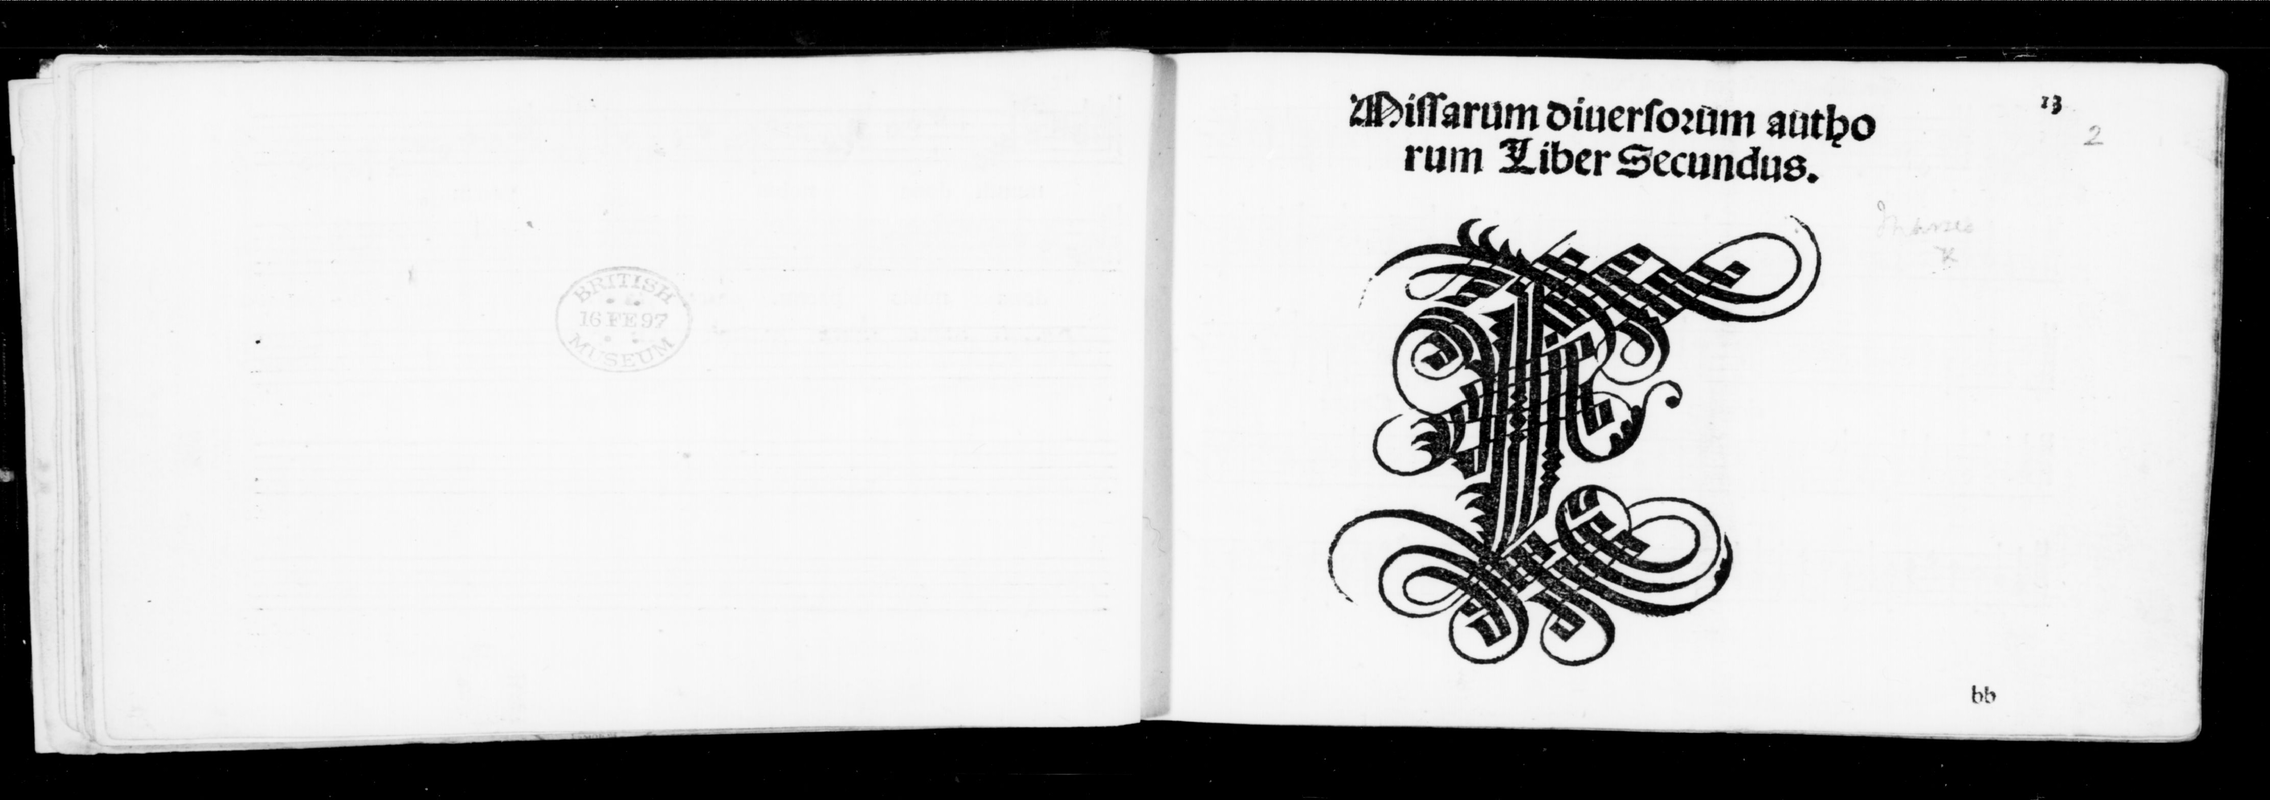 BRITISH
16 FE 97
MUSEUM
Missarum diuersorum autho
rum Liber Secundus.
13
2
T
bb